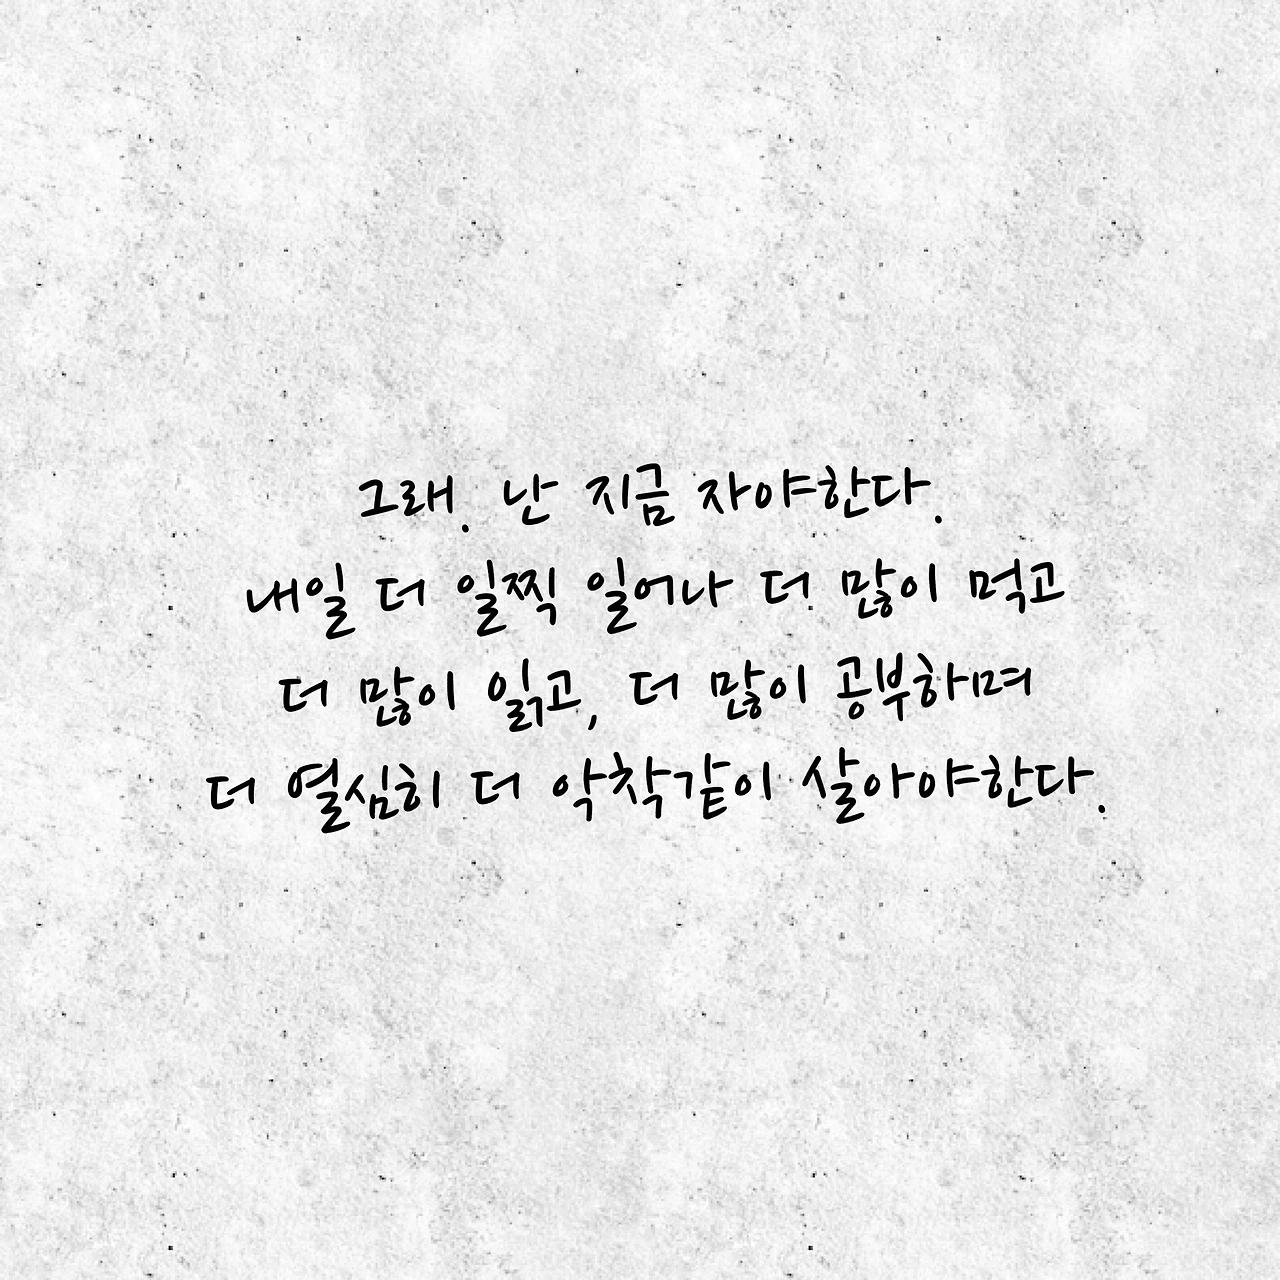 그래. 난 지금 자야한다.
내일 더 일찍 일어나 더 많이 먹고
더 많이 읽고, 더 많이 공부하며
더 열심히 더 악착같이 살아야한다.